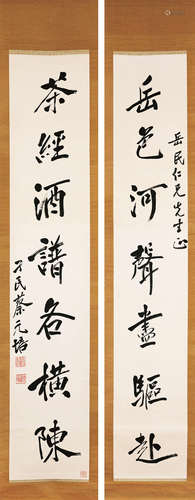 岳色河聲盡驅赴
岳民仁兄先生正
茶經酒譜各橫陳
孑民蔡元培